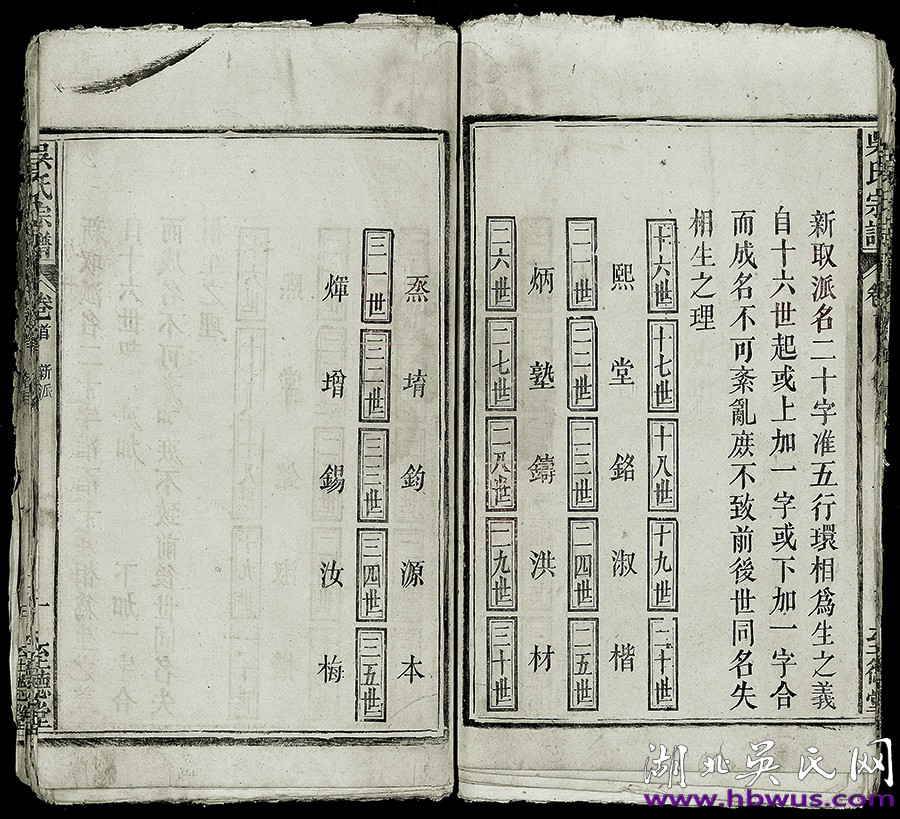 吳氏宗譜
新取派名二十字准五行環相爲生之義
自十六世起或上加一字或下加一字合
而成名不可紊亂庶不致前後世同名失
相生之理
十六世 十七世 十八世 十九世 二十世
熙 堂 銘 淑 楷
二一世 二二世 二三世 二四世 二五世
炳 塾 鑄 洪 材
二六世 二七世 二八世 二九世 三十世
烝 堉 鈞 源 本
三一世 三二世 三三世 三四世 三五世
煇 增 錫 汝 梅
吳氏宗譜 卷首 新派 一 至德堂
湖北吳氏网
www.hbwus.com